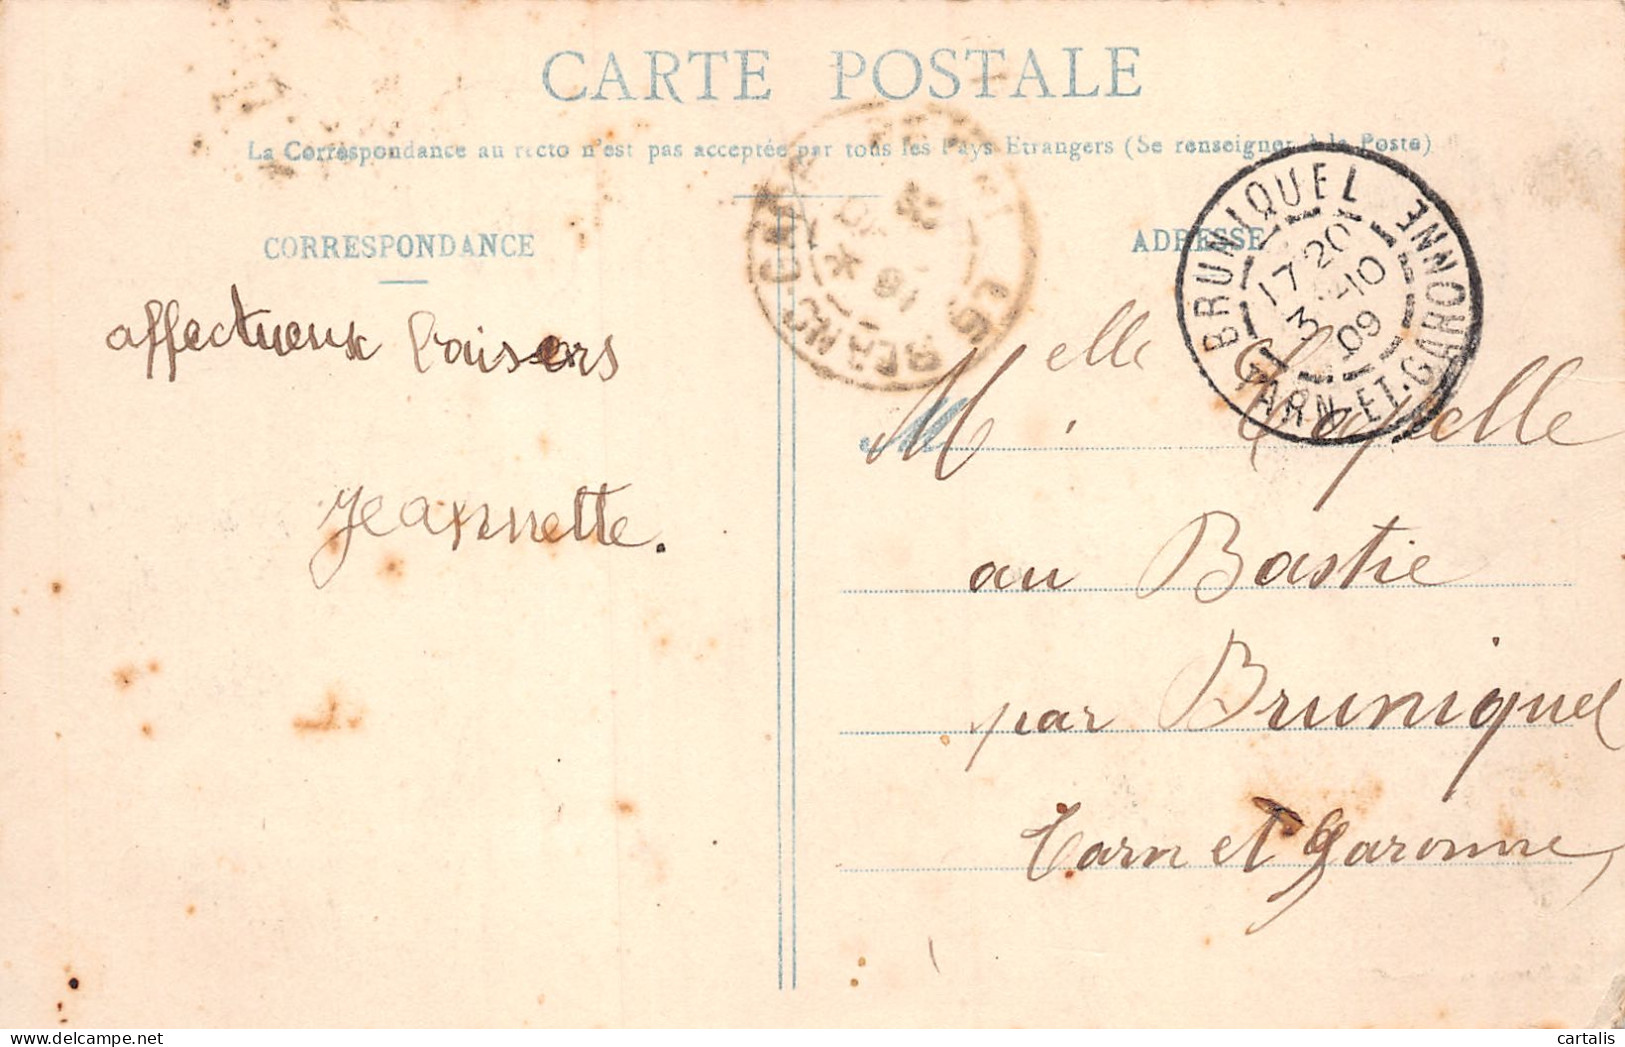 CARTE POSTALE
La Correspondance au recto n'est pas acceptée par tous les Pays Etrangers (Se renseigner à la Poste)
CORRESPONDANCE
ADRESSE
affectueux baisers
Jeannette.
BRUNIQUEL
17 20
3 10
09
TARN-ET-GARONNE
Melle
au Bastie
par Bruniquel
Tarn et Garonne
cartalis